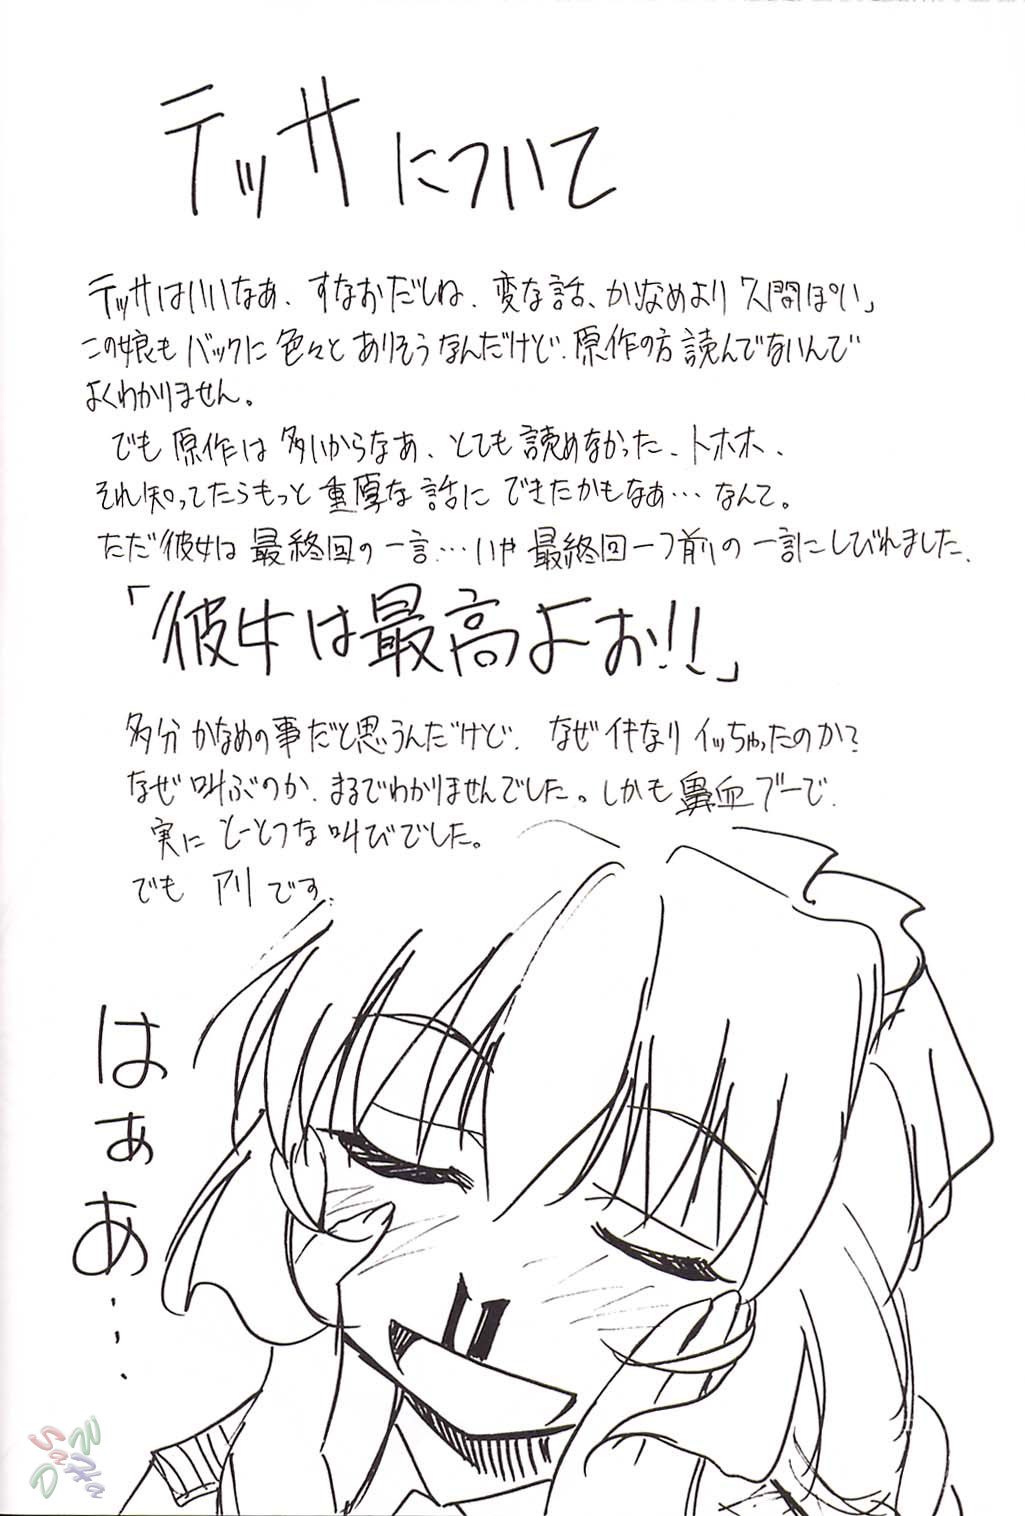 テッサについて
テッサはいいなぁ、すなおだしね、変な話、かなめより「人間ぽい」
この娘もバックに色々とありそうなんだけど、原作の方読んでないんで
よくわかりません。
でも原作は多いからなあ、とても読めなかった、トホホ、
それ知ってたらもっと重厚な話にできたかもなぁ…なんて。
ただ彼女は最終回の一言…いや最終回一つ前の一言にしびれました、
「彼女は最高よお!!」
多分かなめの事だと思うんだけど、なぜイキなりイッちゃったのか?
なぜ叫ぶのか、まるでわかりませんでした。しかも鼻血ブーで、
実にとーとつな叫びでした。
でもアリです、
はぁあ……
SaW
DNka